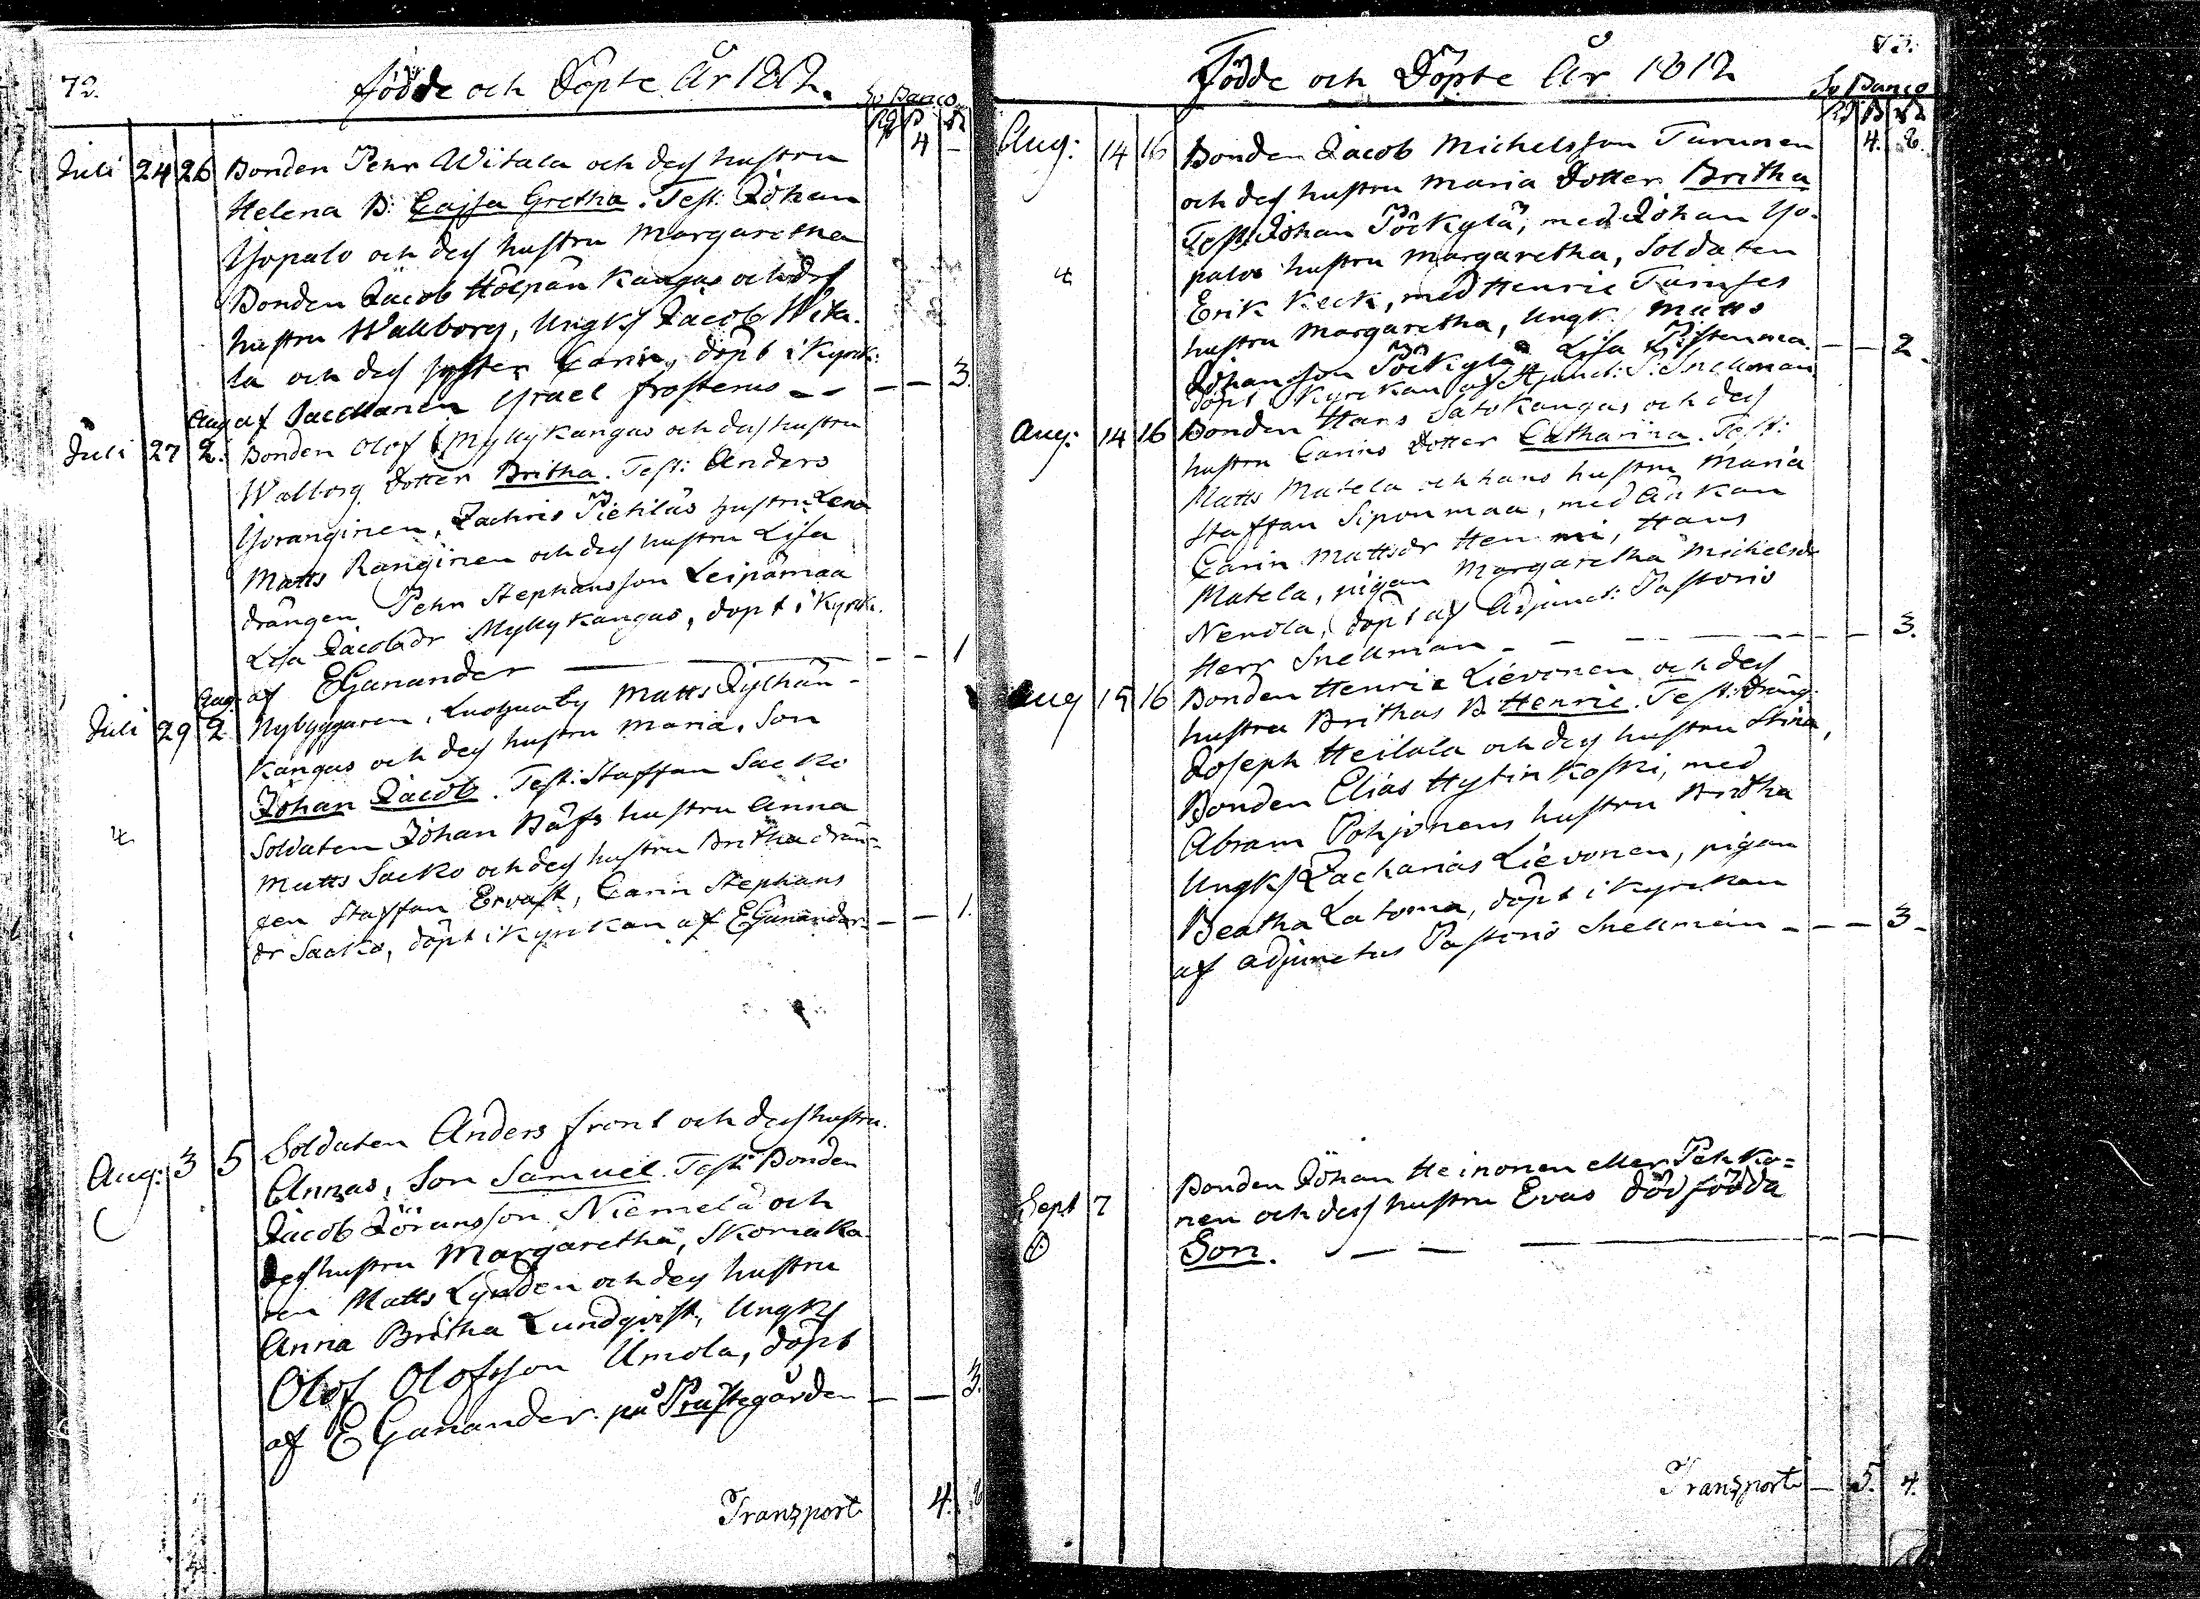 72.
Födde och Döpte År 1812.
Sv Banco
Rd ß
4 –
Juli 24 26 Bonden Pehr Witala och dess hustru
Helena D: Cajsa Gretha. Test: Johan
Yopalo och dess hustru Margaretha
Bonden Jacob Hölpän Kangas och dess
hustru Wallborg, Ungk: Jacob Wita-
la och dess syster Carin, döpt i Kyrk:
af Sacellanen Israel Frosterus – – – – 3.
Aug
Juli 27 2. Bonden Olof Myllykangas och dess hustru
Walborg dotter Britha. Test: Anders
Yoranginen, Zachris Pietiläs hustru Lena
Matts Ranginen och dess hustru Lisa
drängen Pehr Stephansson Leipämaa
Lisa Jacobsdr Myllykangas, döpt i Kyrk.
af EGanander – – – 1
Aug
Juli 29 2 Nybyggaren, Matts Jylhän-
kangas och dess hustru Maria, Son
Johan Jacob. Test: Staffan Sacko
Soldaten Johan Båfs hustru Anna
Matts Sacko och dess hustru Britha drän=
gen Staffan Ervast, Carin Stephans
dr Sacko, döpt i Kyrckan af EGanander – – 1.
Aug: 3 5 Soldaten Anders Front och dess hustru
Annas, Son Samuel. Test: Bonden
Jacob Göransson Niemelä och
dess hustru Margaretha, Skomaka
ren Matts Lynden och dess hustru
Anna Britha Lundqvist, Ungk:
Olof Olofsson Umola, döpt
af EGanander på Prästegården – – 3.
Transport 4. 8
73.
Födde och Döpte År 1812
Sv Banco
Rd ß
4. 8.
Aug: 14 16 Bonden Jacob Michelsson Turunen
och dess hustru Maria dotter Britha
Test: Johan Pöckylä, med Johan Yo-
palos hustru Margaretha, Soldaten
Erik Keck, med Henric
hustru Margaretha, Ungk. Matts
Johansson Pöckylä Lisa – – 2.
döpt i Kyrckan af Adjunct: P: Snellman
Aug: 14 16 Bonden Hans Satokangas och dess
hustru Carins dotter Catharina. Test:
Matts Matela och hans hustru Maria
Staffan Siponmaa, med Änkan
Carin Mattsdr Hen mi, Hans
Matela, pigan Margaretha Michelsdr
Nenola, döpt af Adjunct: Pastoris
Herr Snellman – – – – 3.
Aug 15 16 Bonden Henric Lievonen och dess
hustru Brithas B. Henric. Test: dräng
Joseph Heilala och dess hustru Stina,
Bonden Elias Hytinkoski, med
Abram Pohjonens hustru Britha
Ungk: Zacharias Lievonen, pigan
Beatha Latoma, döpt i Kyrckan
af adjunctus Pastoris Snellman – – – 3 –
Sept 7 Bonden Johan Heinonen eller Pehko=
nen och dess hustru Evas dödfödda
Son. – – –
Transport – 5. 4.